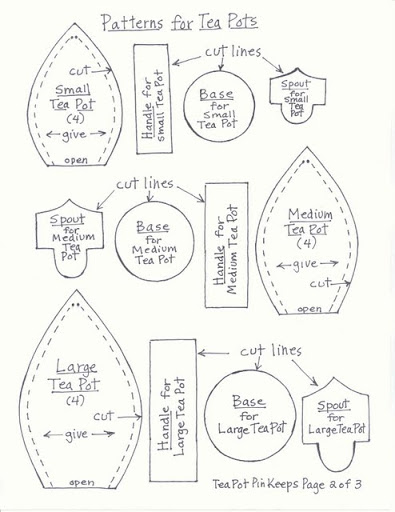 Patterns for Tea Pots
cut lines
cut
Small
Tea Pot
(4)
give
open
Handle for
Small Tea Pot
Base
for
Small
Tea Pot
Spout
for
Small
Tea Pot
cut lines
Spout
for
Medium
Tea
Pot
Base
for
Medium
Tea Pot
Handle for
Medium Tea Pot
Medium
Tea Pot
(4)
give
cut
open
cut lines
Large
Tea Pot
(4)
cut
give
open
Handle for
Large Tea Pot
Base
for
Large Tea Pot
Spout
for
Large Tea Pot
Tea Pot Pin Keeps Page 2 of 3